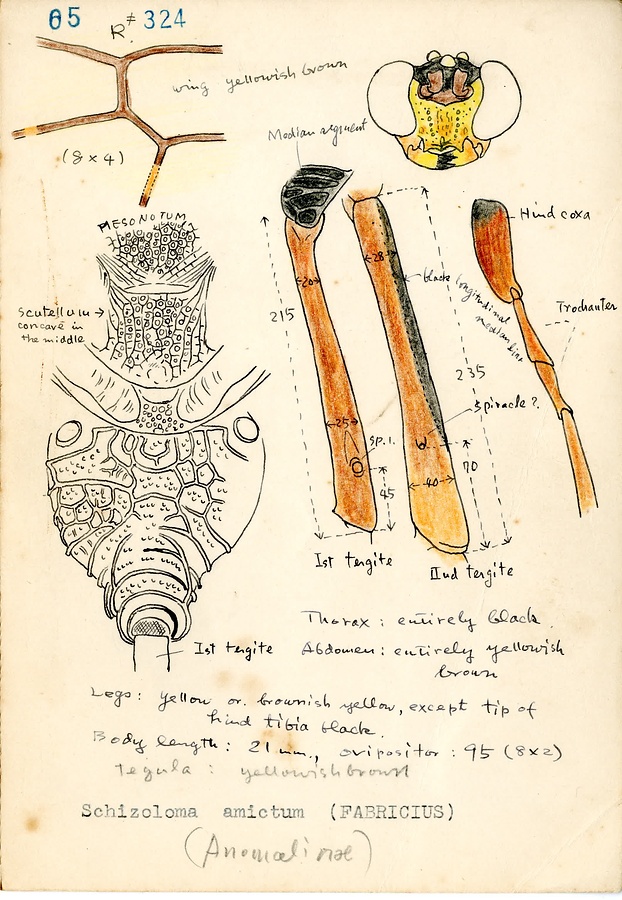 65 R# 324
wing yellowish brown
(8 x 4)
Median segment
MESONOTUM
Scutellum
concave in
the middle
20
215
25
sp. 1.
45
Ist tergite
28
black longitudinal
median line
235
spiracle ?
70
40
IInd tergite
Hind coxa
Trochanter
Ist tergite
Thorax : entirely black.
Abdomen : entirely yellowish
brown
Legs : yellow or brownish yellow, except tip of
hind tibia black.
Body length : 21 mm., ovipositor : 95 (8x2)
Tegula : yellowish brown
Schizoloma amictum (FABRICIUS)
(Anomalinae)